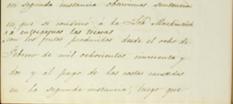 en segunda instancia obtuvimos sentencia
en que se condenó á la Sra
á entregarnos las tierras
con los frutos producidos desde el ocho de
Febrero de mil ochocientos cincuenta y
dos y al pago de las costas causadas
en la segunda instancia; luego que